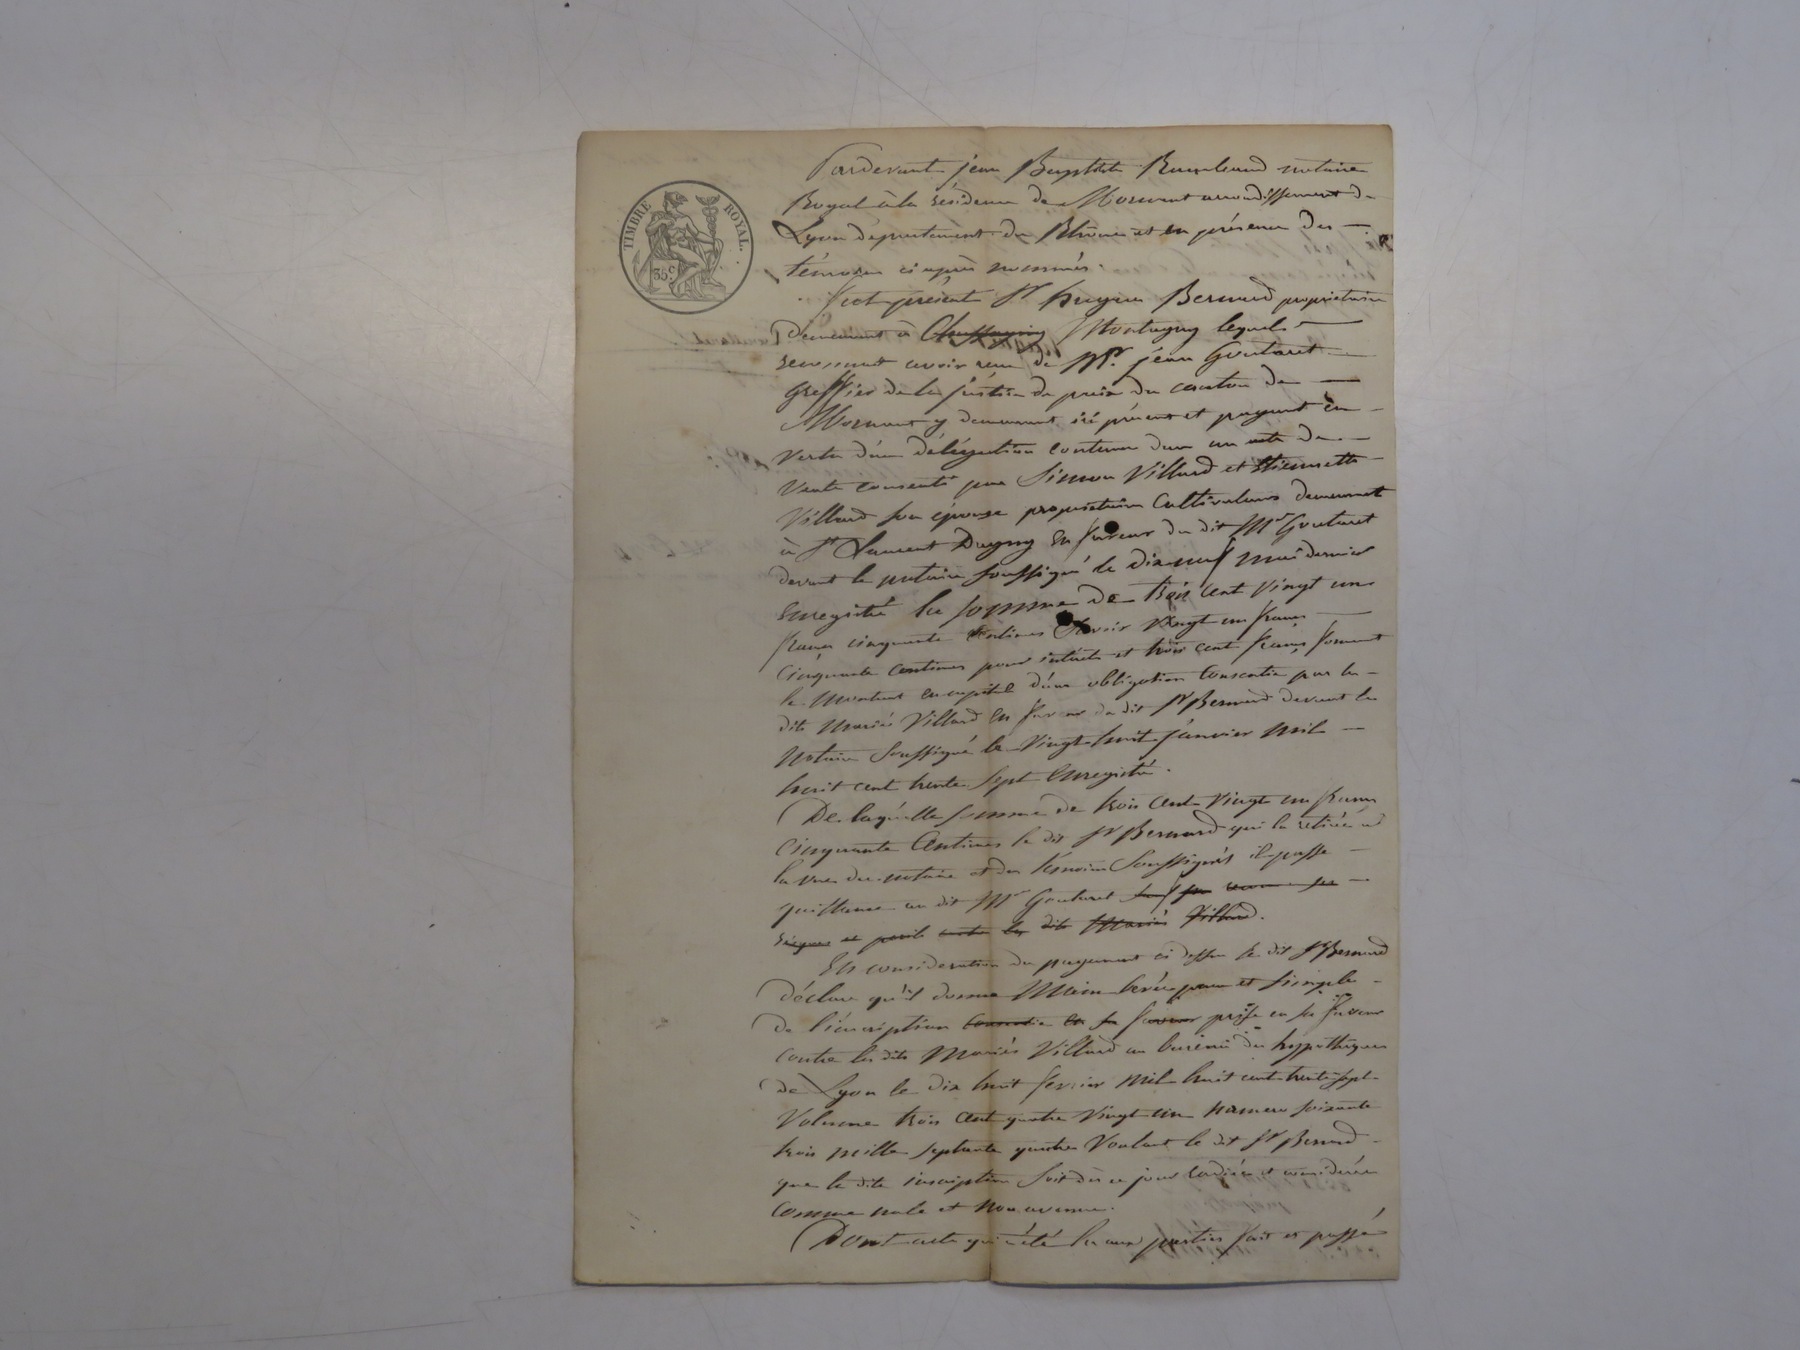 TIMBRE ROYAL.
35 c
Pardevant jean Baptiste notaire
Royal à la résidence de Mornant arrondissement de
Lyon département du Rhône et en présence des
témoins ci après nommés.
Est présent Sr Bernard propriétaire
demeurant à Chassagny Montagny lequel
reconnait avoir reçu de Mr. jean Goutaret
greffier de la justice de paix du canton de
Mornant y demeurant ici présent et payant en
vertu d'une délégation contenue dans un acte de
vente consenti par Simon Villard et Etiennette
Villard son épouse propriétaires Cultivateurs demeurant
à St Laurent Dagny en faveur du dit Mr Goutaret
devant le notaire soussigné le dix neuf mai dernier
enregistré la somme de trois cent vingt un
francs cinquante centimes savoir vingt un francs
cinquante centimes pour intérêts et trois cent francs formant
le montant en capital d'une obligation consentie par les
dits mariés Villard en faveur du dit Sr Bernard devant le
notaire soussigné le vingt huit janvier mil
huit cent trente sept enregistré.
De laquelle somme de trois cent vingt un francs
cinquante centimes le dit Sr Bernard qui la retirée à
la vue du notaire et des témoins soussignés il passe
quittance au dit Mr Goutaret
risques et perils contre les dits Mariés Villard.
En considération du payement ci dessus le dit Sr Bernard
déclare qu'il donne Main levée pure et simple
de l'inscription consentie en sa faveur prise en sa faveur
contre les dits Mariés Villard au bureau des hypothèques
de Lyon le dix huit fevrier mil huit cent trente sept
Volume trois cent quatre vingt un numero soixante
trois mille septante quatre Voulant le dit Sr Bernard
que la dite inscription soit dès ce jour radiée et considérée
comme nule et non avenue.
Dont acte qui a été lu aux parties fait et passé